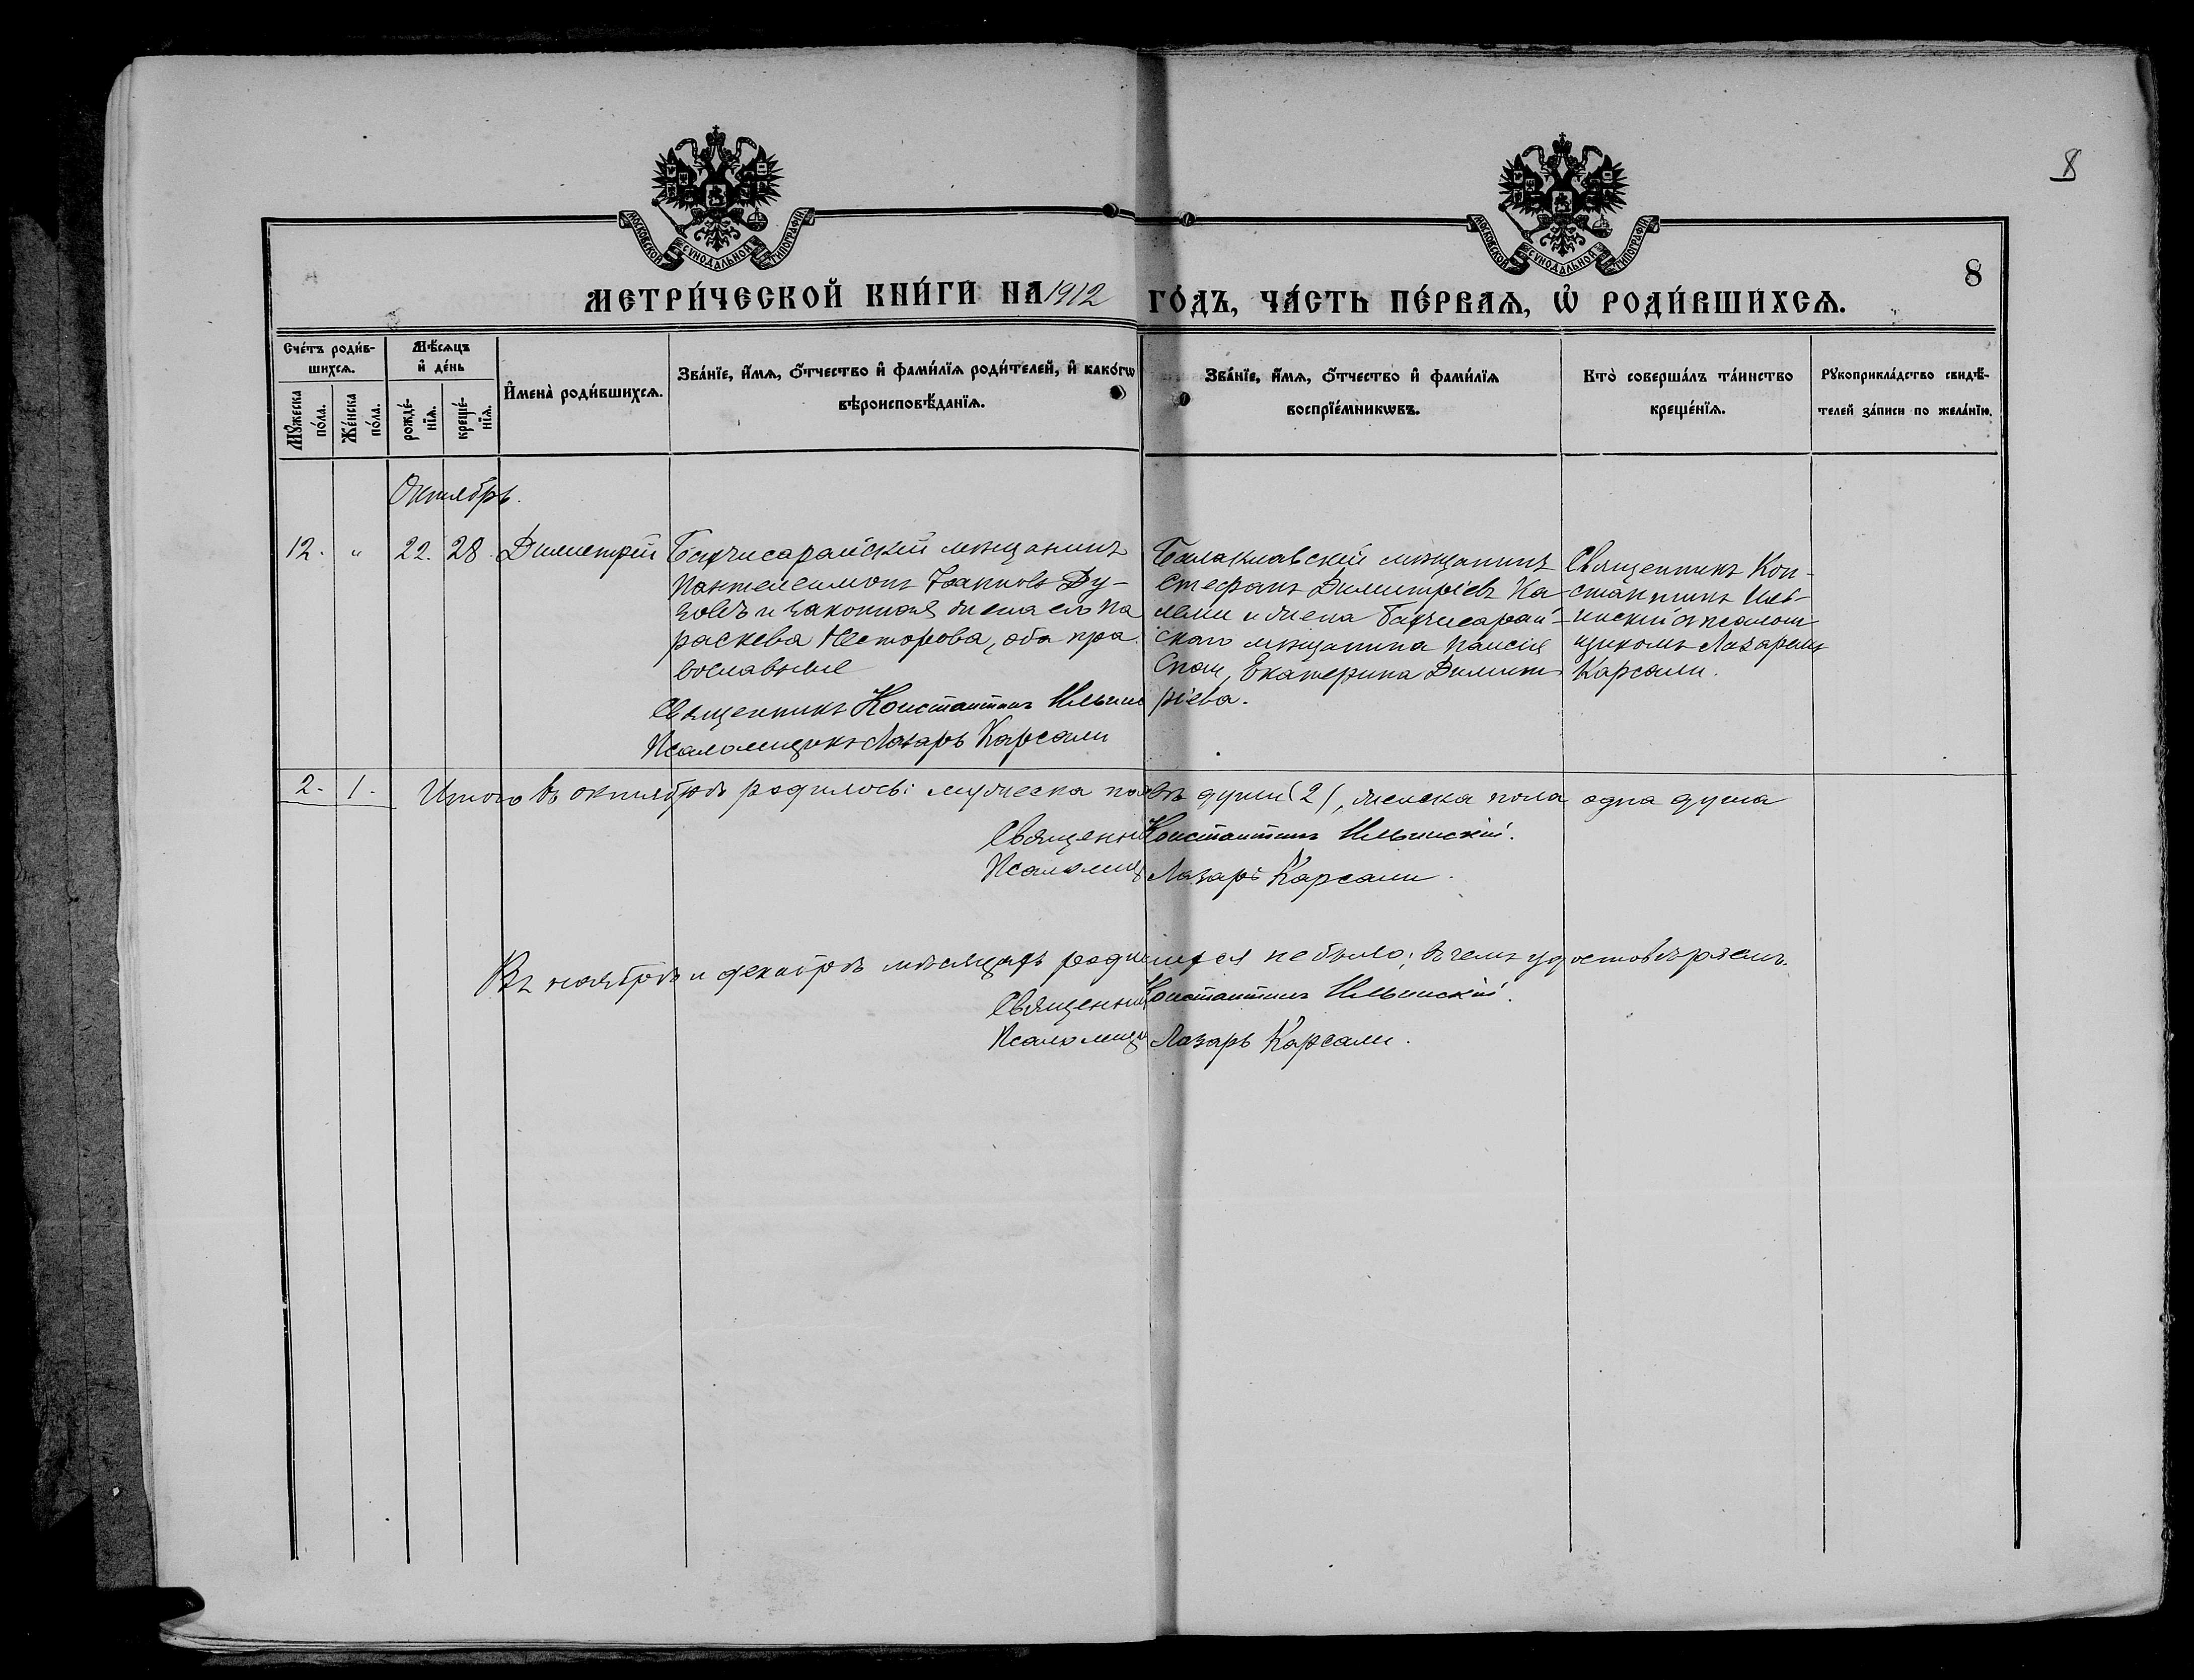 8
МОСКОВСКОЙ СѴНОДАЛЬНОЙ ТИПОГРАФІИ
МОСКОВСКОЙ СѴНОДАЛЬНОЙ ТИПОГРАФІИ
8
МЕТРИ́ЧЕСКОЙ КНИ́ГИ НА 1912 ГО́ДЪ, ЧА́СТЬ ПЕ́РВАЯ, Ѡ҆ РОДИ́ВШИХСЯ.
Сче́тъ роди́в-
шихся.
Мꙋ́жеска по́ла.
Же́нска по́ла.
Мѣ́сяцъ
и҆ де́нь
рожде́-
нїя.
креще́-
нїя.
И҆мена̀ роди́вшихся.
Зва́нїе, и҆́мя, ѻ҆́тчество и҆ фами́лїя роди́телей, и҆ како́гѡ
вѣроисповѣ́данїя.
Зва́нїе, и҆́мя, ѻ҆́тчество и҆ фами́лїя
воспрїе́мникѡвъ.
Кто̀ соверша́лъ та́инство
креще́нїя.
Рꙋкоприкла́дство свидѣ́-
телей за́писи по жела́нїю.
Октябрь.
12. " 22. 28. Димитрій
Бахчисарайскій мѣщанинъ
Пантелеимонъ Іоанновъ Ду-
зовъ и законная жена его Па
раскева Несторова, оба пра
вославные
Священникъ Константинъ Ильинс
Псаломщикъ Лазарь Карсали
Балаклавскій мѣщанинъ
Стефанъ Димитріевъ Ка-
лами и жена Бахчисарай-
скаго мѣщанина Паисія
Спаи, Екатерина Димит
ріева.
Священникъ Кон-
стантинъ Иль-
инскій съ псалом
щикомъ Лазаремъ
Карсали.
2. 1. Итого въ октябрѣ родилось: мужеска пола двѣ души (2), женска пола одна душа
Священни Константинъ Ильинскій.
Псаломщ Лазарь Карсали.
Въ ноябрѣ и декабрѣ мѣсяцахъ родившихся не было; въ чемъ удостовѣряемъ.
Священни Константинъ Ильинскій.
Псаломщи Лазарь Карсали.